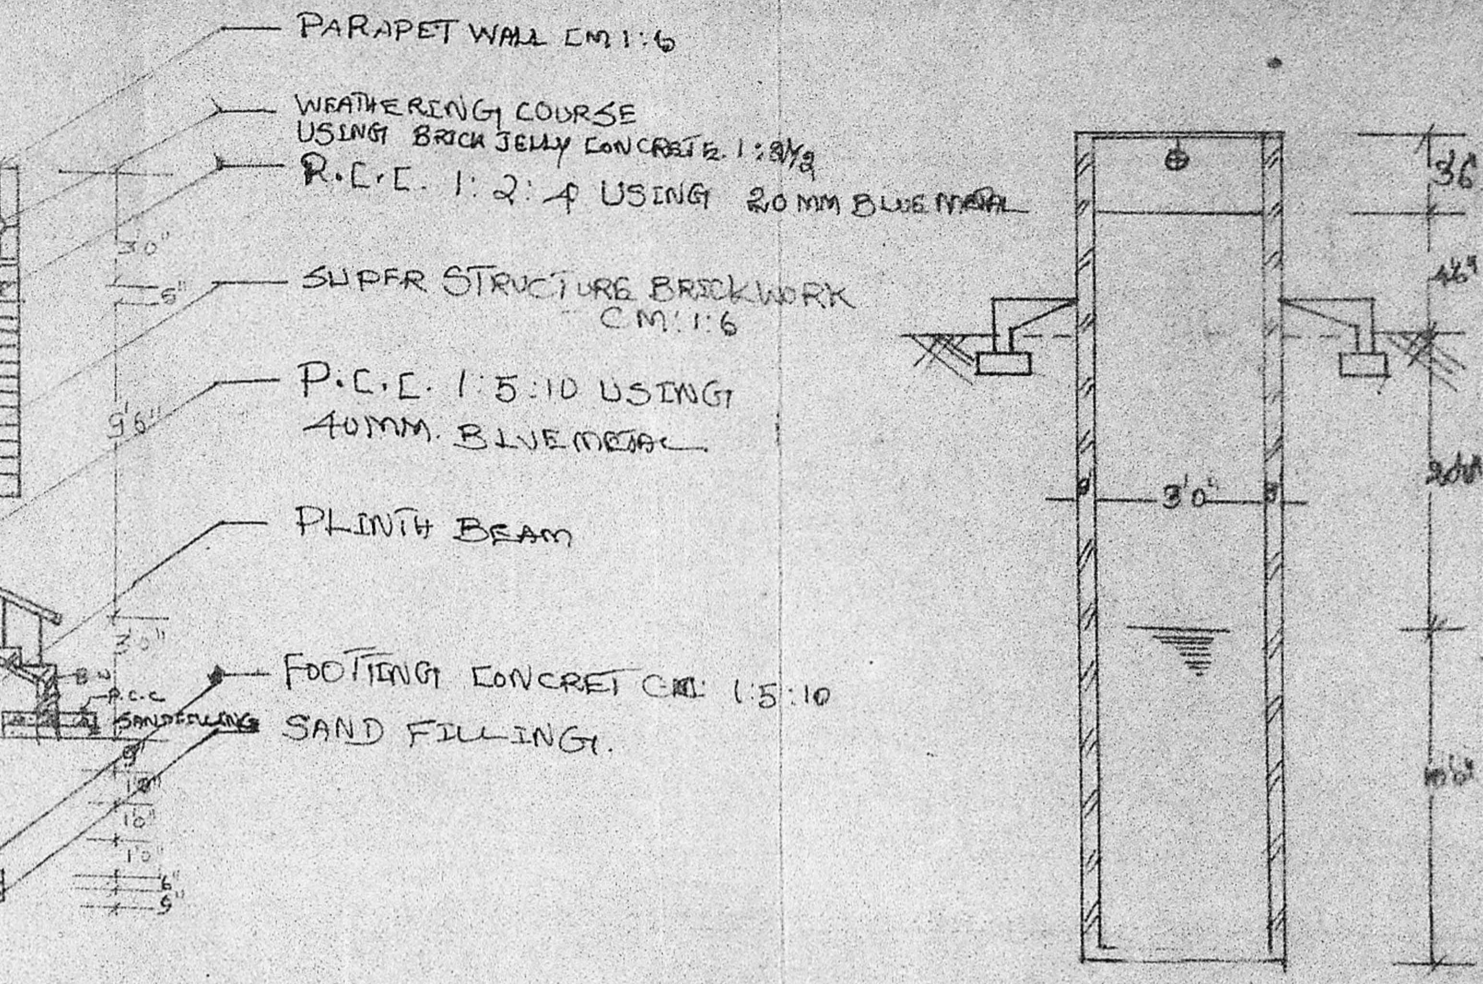 PARAPET WALL CM 1:6
WEATHERING COURSE
USING BRICK JELLY CONCRETE. 1:2½
R.C.C. 1:2:4 USING 20MM BLUE METAL
SUPER STRUCTURE BRICKWORK
CM:1:6
P.C.C. 1:5:10 USING
40MM. BLUE METAL
PLINTH BEAM
FOOTING CONCRET CM: 1:5:10
SAND FILLING.
3'0"
9'6"
3'0"
B.W
P.C.C
SANDFILLING
9"
1'0"
1'0
6"
9"
3'0"
9"
3'6
4'6"